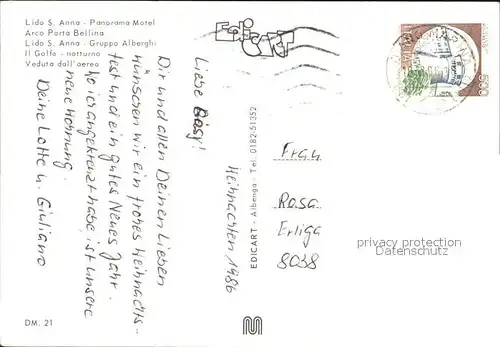 Lido S. Anna - Panorama Motel
Arco Porta Bellina
Lido S. Anna - Gruppo Alberghi
Il Golfo - notturno
Veduta dall'aereo
EDICART
500
Weihnachten 1986
Liebe Rösy!
Dir und allen Deinen Lieben
wünschen wir ein frohes Weihnachts-
fest und ein gutes Neues Jahr.
Wo ich angekreuzt habe, ist unsere
neue Wohnung.
Deine Lotte u. Giuliano
EDICART - Albenga - Tel. 0182-51352
Frau
Rosa
Erliga
8038
privacy protection
Datenschutz
DM. 21